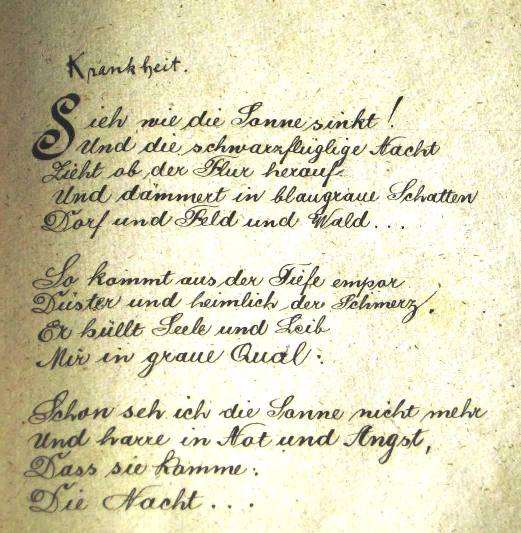 Krankheit.
Sieh wie die Sonne sinkt!
Und die schwarzflüglige Nacht
Zieht ob der Flur herauf
Und dämmert in blaugraue Schatten
Dorf und Feld und Wald...
So kommt aus der Tiefe empor
Düster und heimlich der Schmerz.
Er hüllt Seele und Leib
Mir in graue Qual.
Schon seh ich die Sonne nicht mehr
Und harre in Not und Angst,
Dass sie komme:
Die Nacht...